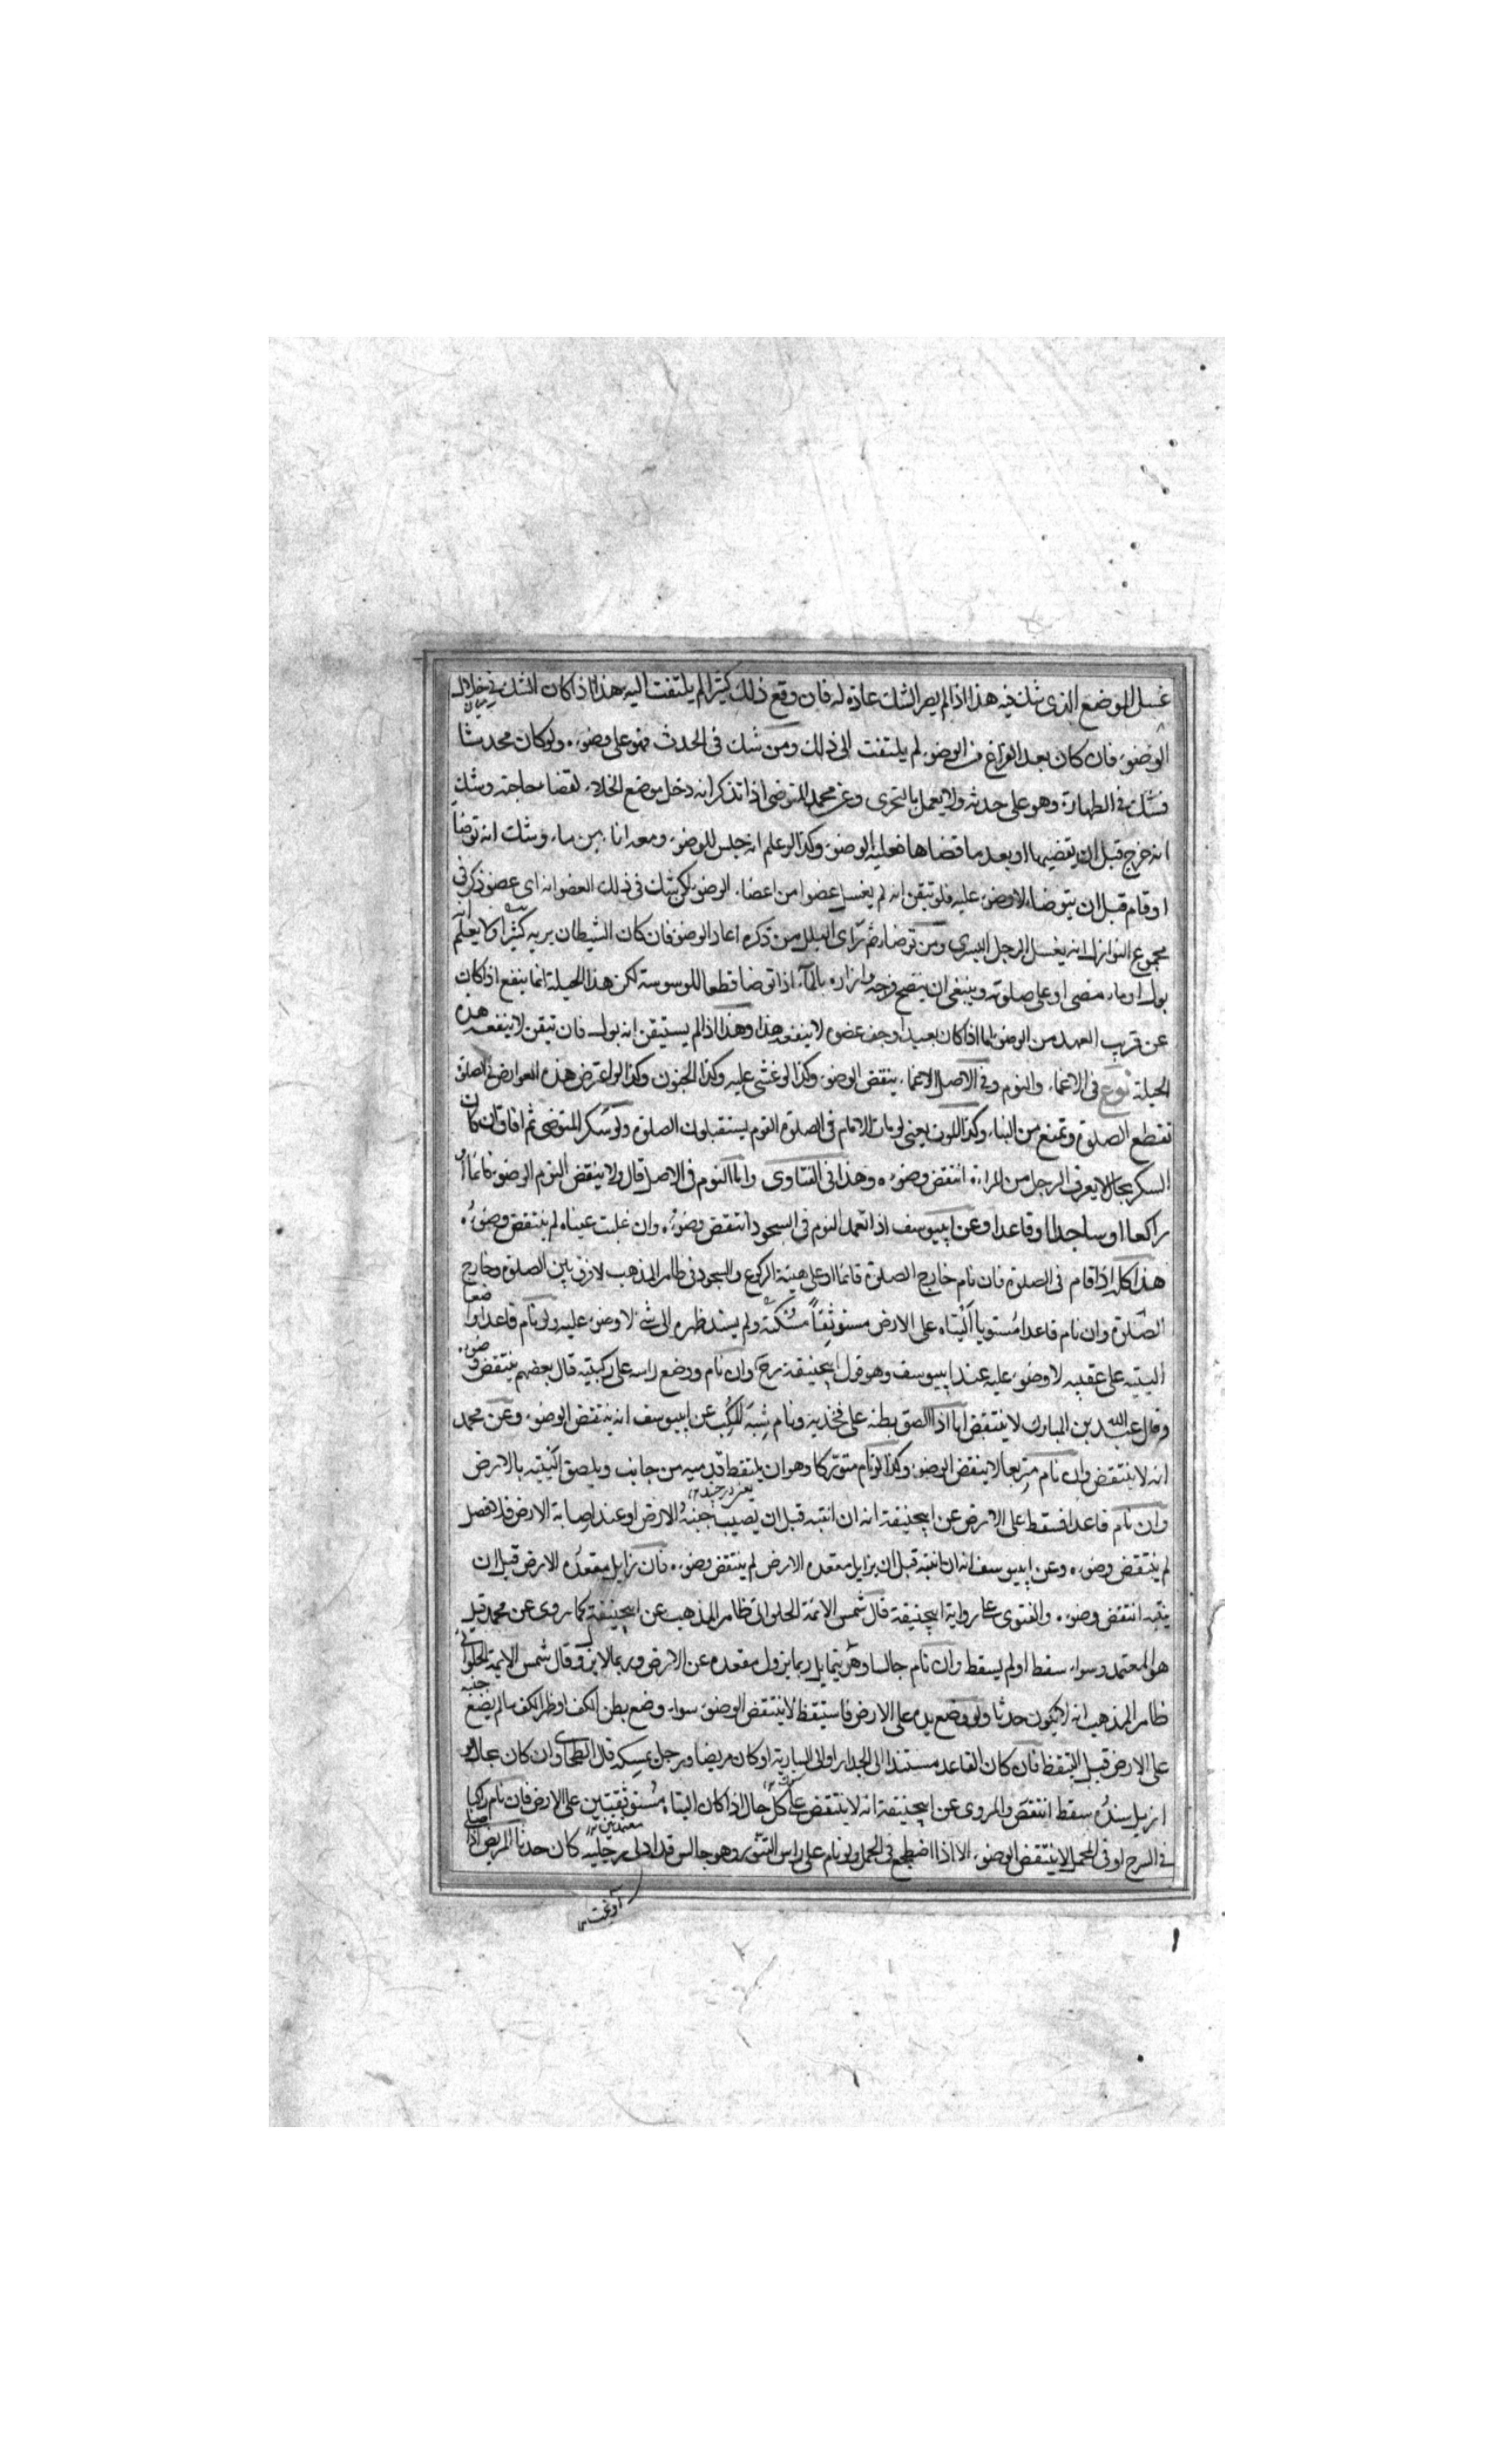 غسل الموضع الذى شك فيه هذا اذا لم يصر الشك عادة له فان وقع ذلك كثيرا لم يلتفت اليه هذا اذا كان الشك فى خلال
الوضوء فان كان بعد الفراغ من الوضوء لم يلتفت الى ذلك ومن شك فى الحدث فهو على وضوءه ولو كان محدثا
فشك فى الطهارة وهو على حدثه ولا يعمل بالتحرى وعن محمد المتوضى اذا تذكر انه دخل موضع الخلاء لقضاء حاجته وشك
انه خرج قبل ان يقضيها او بعد ما قضاها فعليه الوضوء وكذا لو علم انه جلس للوضوء ومعه اناء من ماء وشك انه توضا
او قام قبل ان يتوضا لا وضوء عليه فلو تيقن انه لم يغسل عضوا من اعضاء الوضوء لكن شك فى ذلك العضو انه اى عضو ذكر فى
مجموع النوازل انه يغسل الرجل اليسرى ومن توضا ثم راى البلل من ذكره اعاد الوضوء فان كان الشيطان يريه كثيرا ولا يعلم انه
بول او ماء مضى على صلوته وينبغى ان ينضح فرجه وازاره بالماء اذا توضا قطعا للوسوسة لكن هذا الحيلة انما ينفع اذا كان
عن قريب العهد من الوضوء اما اذا كان بعيدا وجف عضوه لا ينفعه هذا وهذا اذا لم يستيقن انه بول فان تيقن لا ينفعه هذه
الحيلة نوع فى الاغماء والنوم وفى الاصل الاغماء ينقض الوضوء وكذا لو غشى عليه وكذا الجنون وكذا لو اعترض هذه العوارض فى الصلوة
تقطع الصلوة وتمنع من البناء وكذا الموت يعنى لو مات الامام فى الصلوة القوم يستقبلون الصلوة ولو سكر المتوضى ثم افاق ان كان
السكر بحال لا يعرف الرجل من المراة انتقض وضوءه وهذا فى الفتاوى واما النوم فى الاصل قال ولا ينقض النوم الوضوء قائما او
راكعا او ساجدا او قاعدا وعن ابيوسف اذا تعمد النوم فى السجود انتقض وضوءه وان غلبت عيناه لم ينتقض وضوءه
هذا كله اذا نام فى الصلوة فان نام خارج الصلوة قائما او على هيئة الركوع والسجود فى ظاهر المذهب لا فرق بين الصلوة وخارج
الصلوة وان نام قاعدا مستويا اليتاه على الارض مستوثقا مسكته ولم يسند ظهره الى شئ لا وضوء عليه ولو نام قاعدا واضعا
اليتيه على عقبيه لا وضوء عليه عند ابيوسف وهو قول ابيحنيفة رح وان نام ووضع راسه على ركبتيه قال بعضهم ينتقض وضوءه
وقال عبد الله بن المبارك لا ينتقض اما اذا الصق بطنه على فخذيه ونام شبه المكب عن ابيوسف انه ينتقض الوضوء وعن محمد
انه لا ينتقض وان نام متربعا لا ينقض الوضوء وكذا لو نام متوركا وهو ان يلتقط قدميه من جانب ويلصق اليتيه بالارض
وان نام قاعدا فسقط على الارض عن ابيحنيفة انه ان انتبه قبل ان يصيب جنبه الارض او عند اصابة الارض فلا فصل
لم ينتقض وضوءه وعن ابيوسف انه ان انتبه قبل ان يزايل مقعده الارض لم ينتقض وضوءه فان زايل مقعده الارض قبل ان
ينتبه انتقض وضوءه والفتوى على رواية ابيحنيفة قال شمس الائمة الحلوانى ظاهر المذهب عن ابيحنيفة كما روى عن محمد قيل
هو المعتمد وسواء سقط او لم يسقط وان نام جالسا وهو يتمايل ربما يزول مقعده عن الارض وربما لا يزول قال شمس الايمة الحلوانى
ظاهر المذهب انه لا يكون حدثا ولو وضع يده على الارض فاستيقظ لا ينتقض الوضوء سواء وضع بطن الكف او ظهر الكف ما لم يضع جنبه
على الارض قبل التيقظ فان كان القاعد مستندا الى الجدار او الى السارية او كان مريضا ورجل يمسكه قال الطحاوى ان كان بحال لو
ازيل سنده سقط انتقض والمروى عن ابيحنيفة انه لا ينتقض على كل حال اذا كان اليتاه مستوثقتين على الارض فان نام راكبا
فى السرج او فى المحمل لا ينتقض الوضوء الا اذا اضطجع فى المحمل ولو نام على راس التنور وهو جالس قد ادلى رجليه كان حدثا المريض اذا